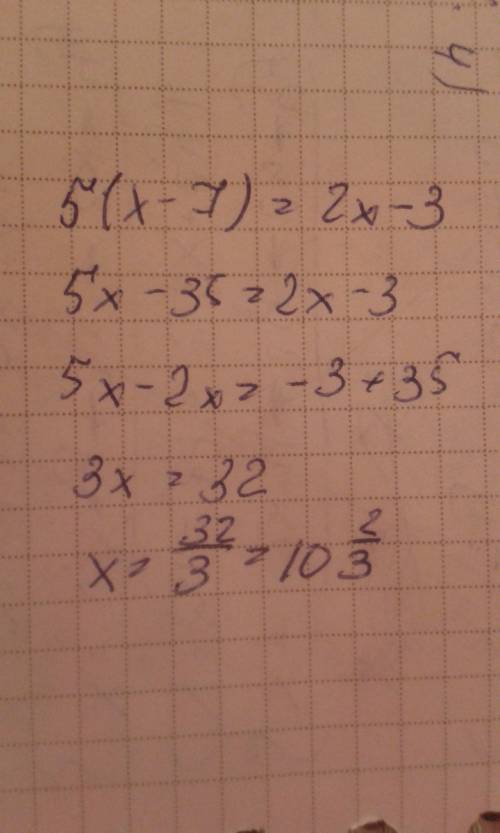 5(x-7)=2x-3
5x-35=2x-3
5x-2x=-3+35
3x=32
x=32/3=10 2/3